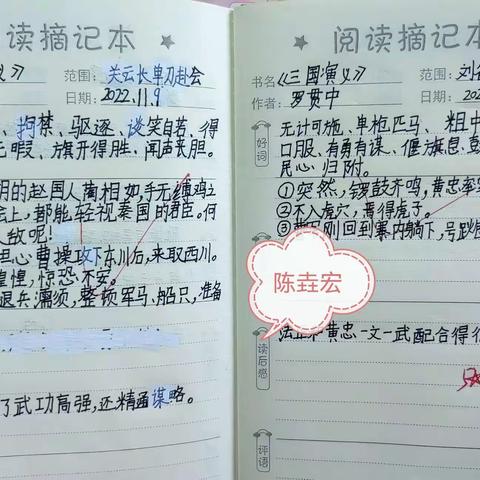 读摘记本
义》 范围: 关云长单刀赴会
日期: 2022.11.9
、拘禁、驱逐、谈笑自若、得
无暇、旗开得胜、闻声丧胆。
明的赵国人蔺相如,手无缚鸡之
会上,都能轻视秦国的君臣。何
人敌呢!
担心曹操攻下东川后,来取西川。
惶惶,惊恐不安。
退兵濡须,整顿军马、船只,准备
了武功高强,还精通谋略。
阅读摘记本
书名《三国演义》 范围: 刘
作者: 罗贯中 日期: 202
好词
无计可施、单枪匹马、粗中
口服、有勇有谋、偃旗息鼓
民心归附。
①突然,锣鼓齐鸣,黄忠率
②不入虎穴,焉得虎子。
③ 刚回到寨内躺下,号
陈垚宏
读后感
法正和黄忠一文一武配合得
评语